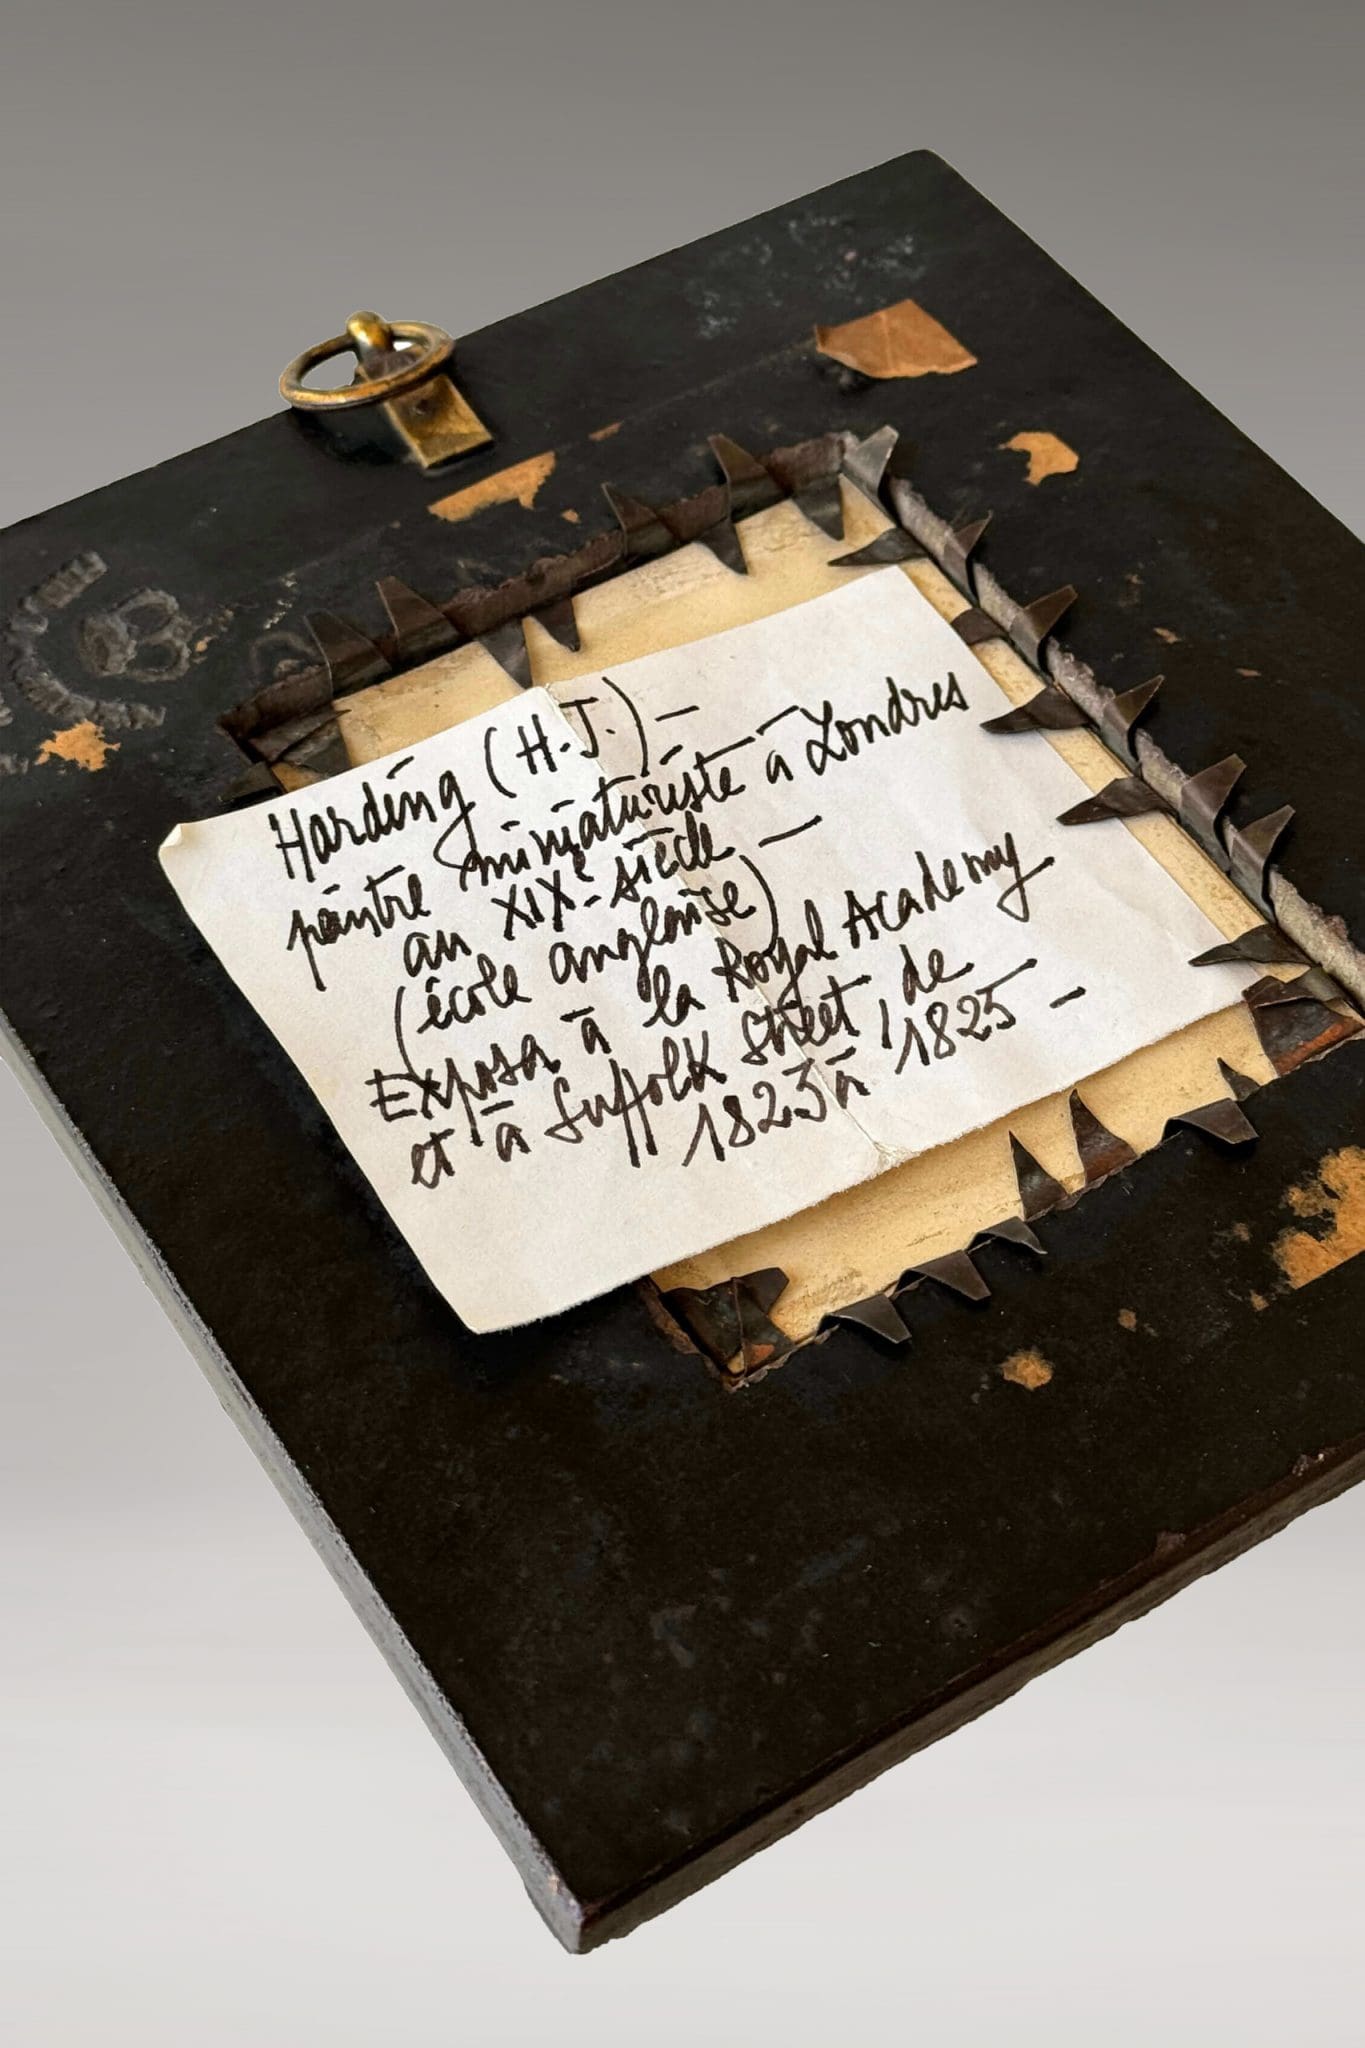 Harding (H.J.) —
peintre miniaturiste à Londres
au XIXè siècle —
(école anglaise)
Exposa à la Royal Academy
et à Suffolk Street, de
1823 à 1825 —